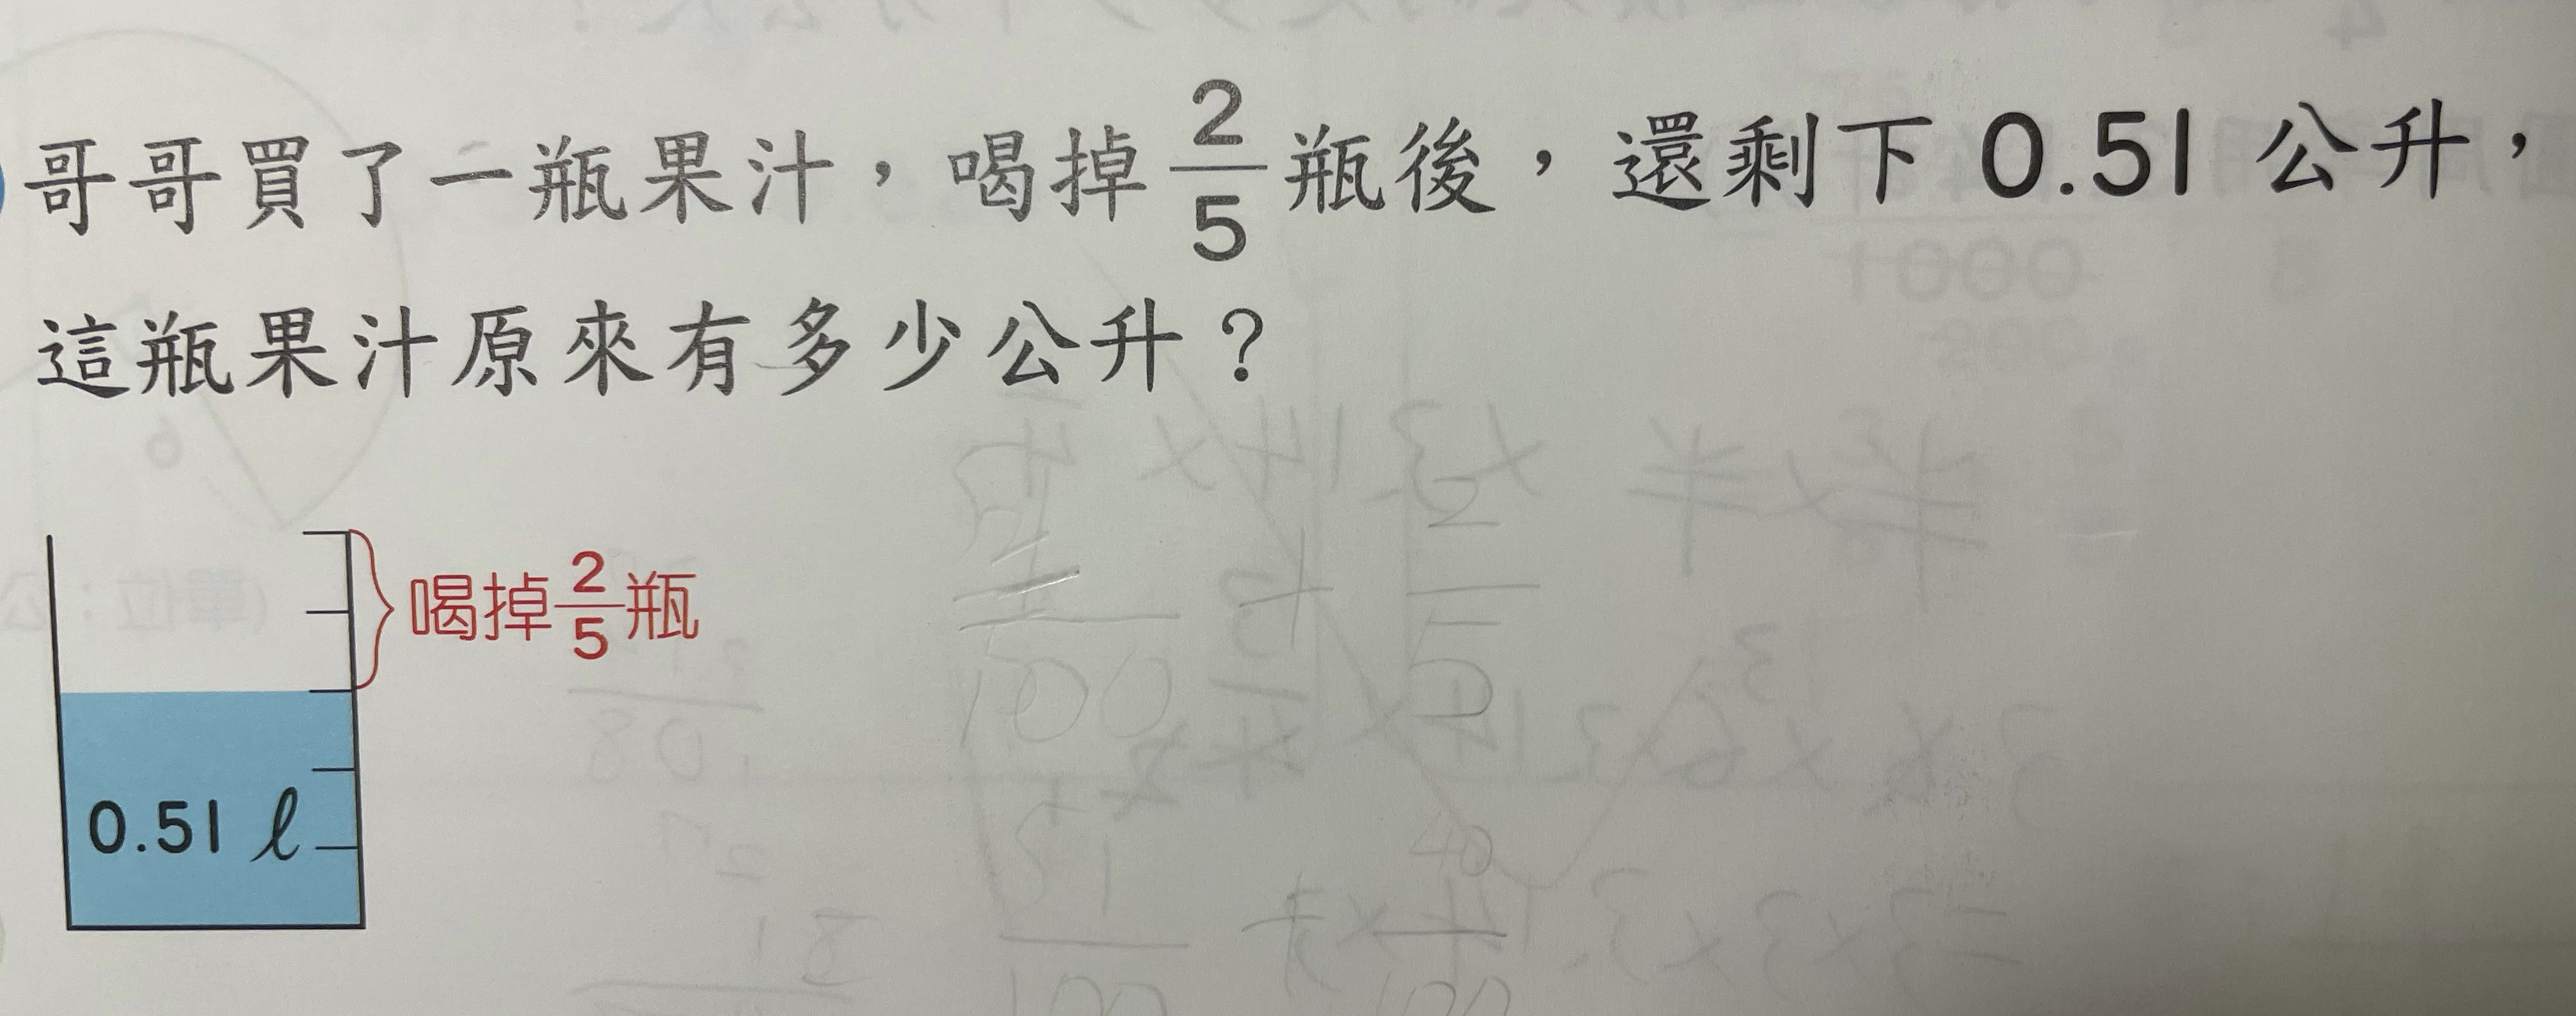 哥哥買了一瓶果汁，喝掉2/5瓶後，還剩下 0.51 公升，
這瓶果汁原來有多少公升？
喝掉2/5瓶
0.51 ℓ